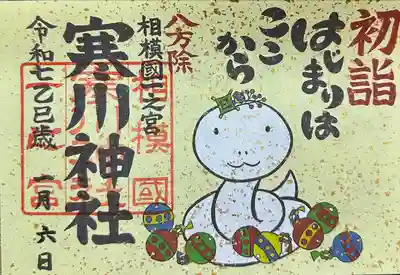 初詣
はじまりは
ここから
八方除
相模國一之宮
寒川神社
令和七乙巳歳 一月 六日
相模國
一之宮